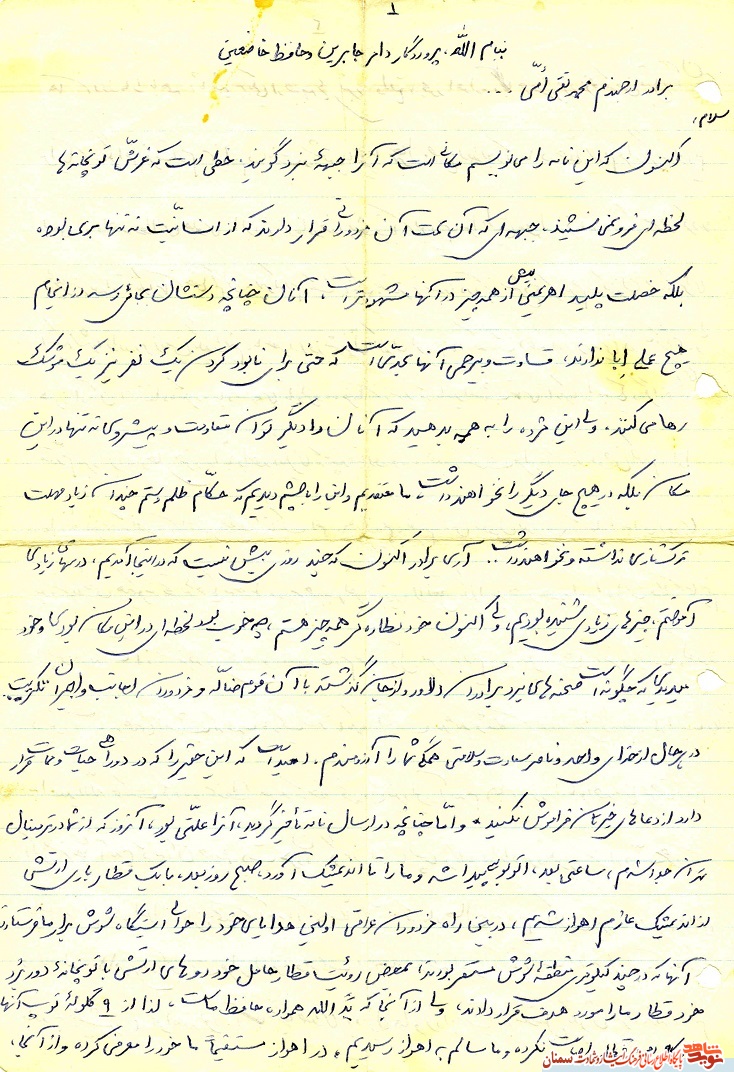 ۱
بنام الله پروردگار دامر جابرین و حافظ خاضعین
برادر ارجمندم محمد تقی اُمّی ...
سلام،
اکنون که این نامه را می‌نویسم مکانی است که آنرا جبههٔ نبرد گویند. خطی است که غرشّ توپخانه‌ها
لحظه‌ای فرو نمی‌نشیند. جبهه‌ای که آن سمت آن مزدورانی قرار دارند که از انسانیّت نه تنها بری بوده
بلکه خصلت پلید اهریمنی بیش از همه چیز در آنها مشهودتر است. آنان چنانچه دستشان بجائی رسد از انجام
هیچ عملی اِبا ندارند، قساوت و بیرحمی آنها بحدّی است که حتی برای نابود کردن یک نفر نیز یک موشک
رها می‌کنند. ولی این مژده را به همه بدهید که آنان را دیگر توان مقاومت و پیشروی نه تنها در این
مکان بلکه در هیچ جای دیگر را نخواهند داشت. ما معتقدیم و این را بچشم دیدیم که حکّام ظلم و ستم چندان زیاد مهلت
ترکتازی نداشته و نخواهند داشت.. آری برادر اکنون که چند روزی بیش نیست که در اینجا آمدیم، درسهای زیادی
آموختم، چیزهای زیادی شنیده بودیم، ولی اکنون خود نظاره‌گر همه چیز هستم، چه خوب بود لحظه‌ای در این مکان بودی و خود
میدیدی که چگونه است صحنه‌های نبرد برادران دلاور و از جان گذشته با آن قوم ضالّه و مزدوران اجانب و اجیران تکریت.
در هر حال از خدای واحد و ناصر سعادت و سلامتی همگی شما را آرزومندم. امید است که این حقیر را که در دوراهی حیات و ممات قرار
دارد از دعاهای خیرتان فراموش نکنید * و امّا چنانچه در ارسال نامه تأخیر گردید، آنرا علّتی بود، آنروز که از شما در ترمینال
تهران جدا شدم، ساعتی بعد، اتوبوس پیدا شد و ما را تا اندیمشک آورد، صبح روز بعد، با یک قطار باری ارتشی
از اندیمشک عازم اهواز شدیم، در بین راه مزدوران عراقی اولین هدایای خود را حوالی ایستگاه شوش برایمان فرستادند
آنها که در چند کیلومتری منطقهٔ شوش مستقر بودند، بمحض رؤیت قطار حامل خودروهای ارتشی با توپخانهٔ دور برد
خود قطار ما را مورد هدف قرار دادند، ولی از آنجا که یَدُ الله همراه، حافظ ماست، لذا از ۹ گلولهٔ توپ آنها
اصابت نکرده و ما سالم به اهواز رسیدیم. در اهواز مستقیماً ما خود را معرفی کرده و از آنجا،
نوید شاهد
پایگاه اطلاع رسانی فرهنگ ایثار و شهادت سمنان